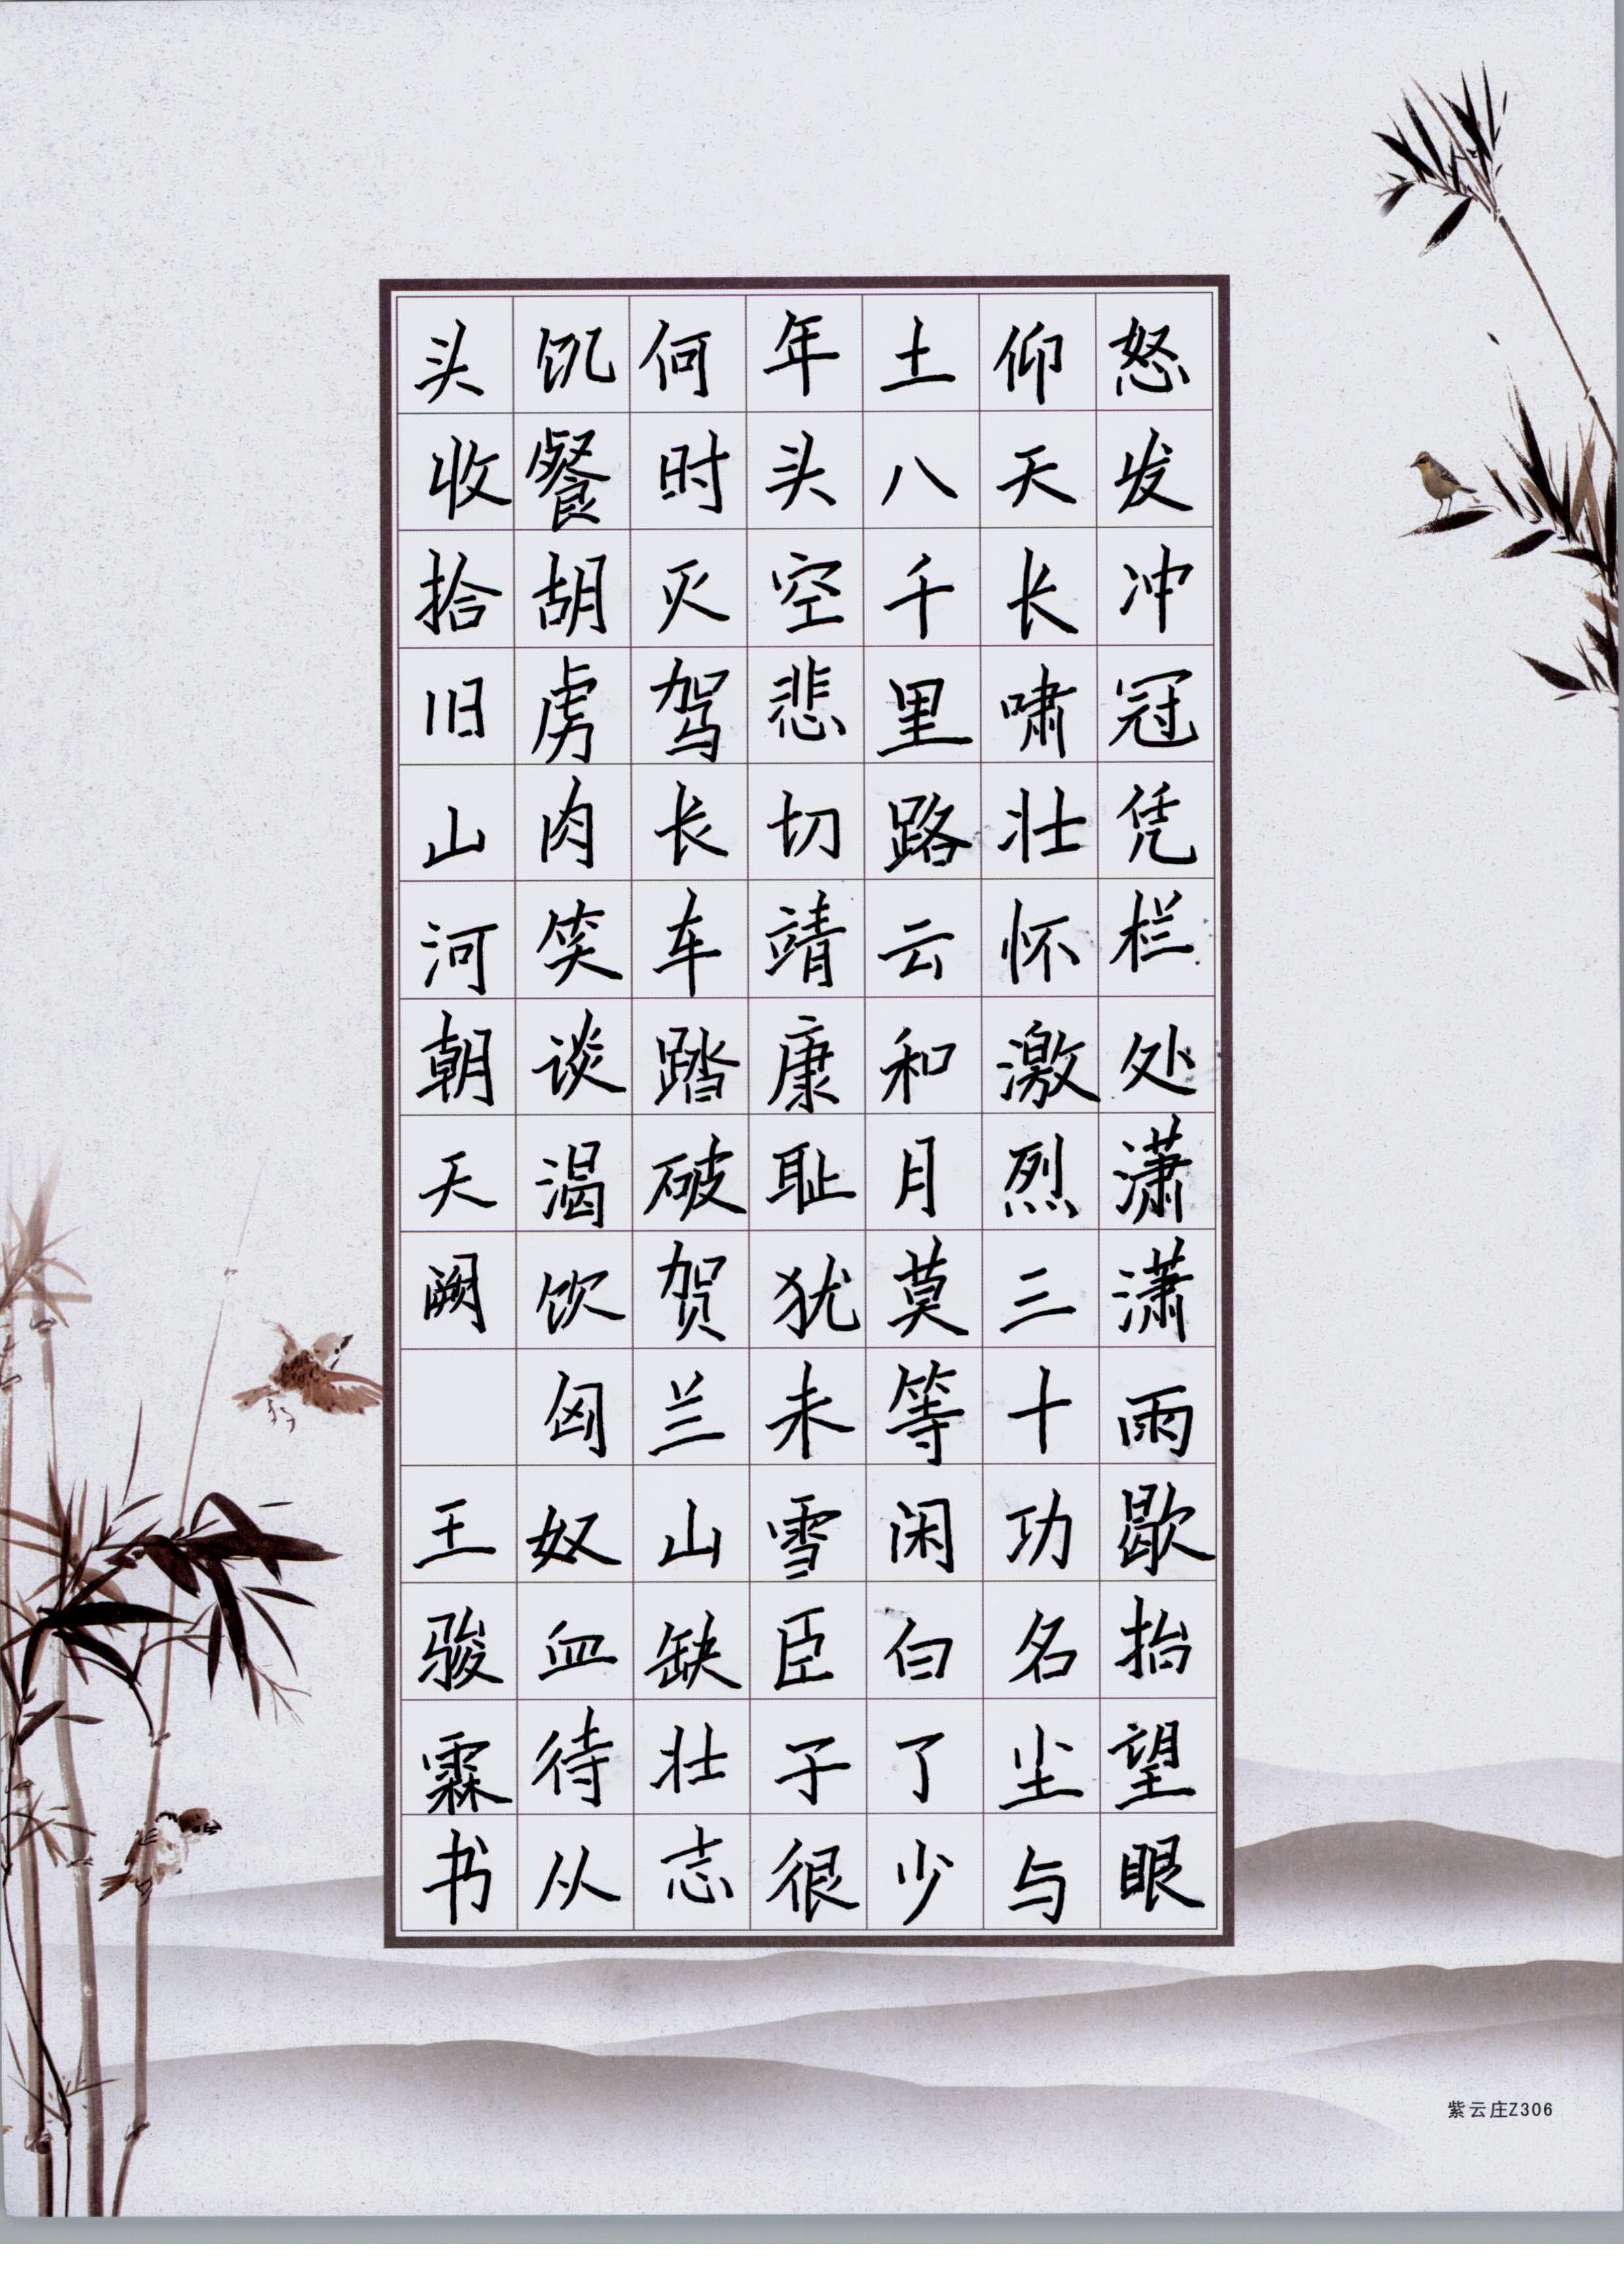 怒发冲冠凭栏处潇潇雨歇抬望眼
仰天长啸壮怀激烈三十功名尘与
土八千里路云和月莫等闲白了少
年头空悲切靖康耻犹未雪臣子很
何时灭驾长车踏破贺兰山缺壮志
饥餐胡虏肉笑谈渴饮匈奴血待从
头收拾旧山河朝天阙 王骏霖书
紫云庄Z306